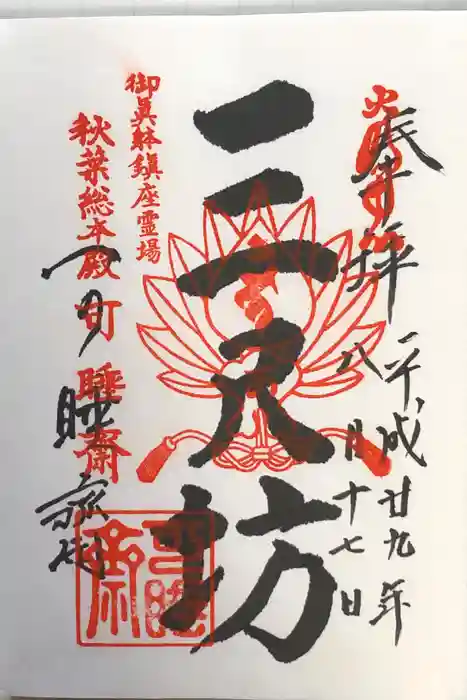 奉拝
平成廿九年
八月十七日
三尺坊
御眞躰鎮座霊場
秋葉総本殿可睡斎
可睡斎